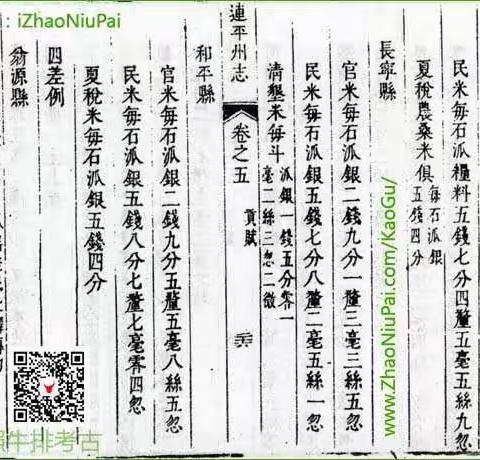 : iZhaoNiuPai
民米每石派糧料五錢七分四釐五毫五絲九忽
夏稅農桑米俱每石派銀五錢四分
長寧縣
官米每石派銀二錢九分一釐三毫三絲五忽
民米每石派銀五錢七分八釐二毫五絲一忽
清墾米每斗派銀一錢五分零一毫二絲三忽二微
連平州志
卷之五
貢賦
和平縣
官米每石派銀二錢九分五釐五毫八絲五忽
民米每石派銀五錢八分七釐七毫零四忽
夏稅米每石派銀五錢四分
四差例
翁源縣
www.ZhaoNiuPai.com/KaoGu/
牛排考古